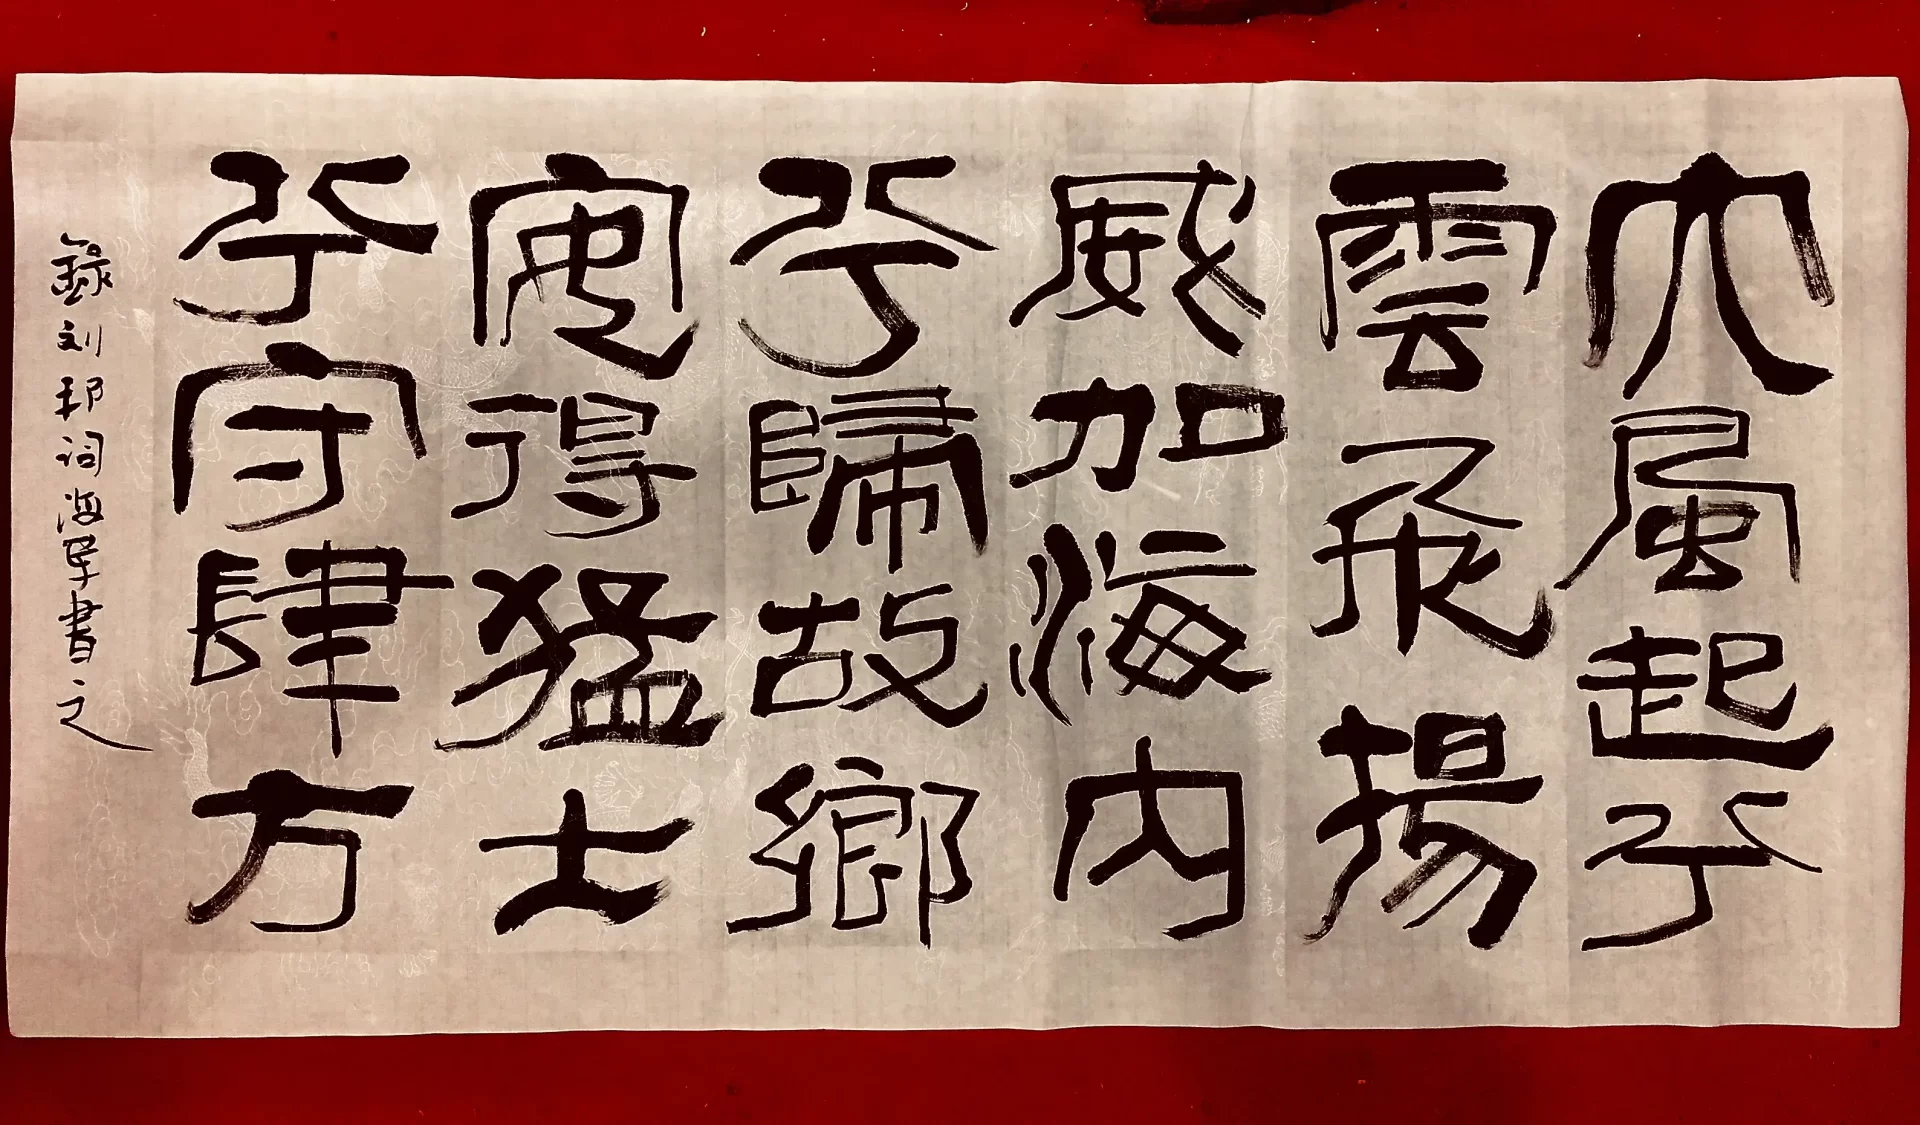 大風起兮
雲飛揚
威加海内
兮歸故鄉
安得猛士
兮守肆方
錄刘邦词海军書之